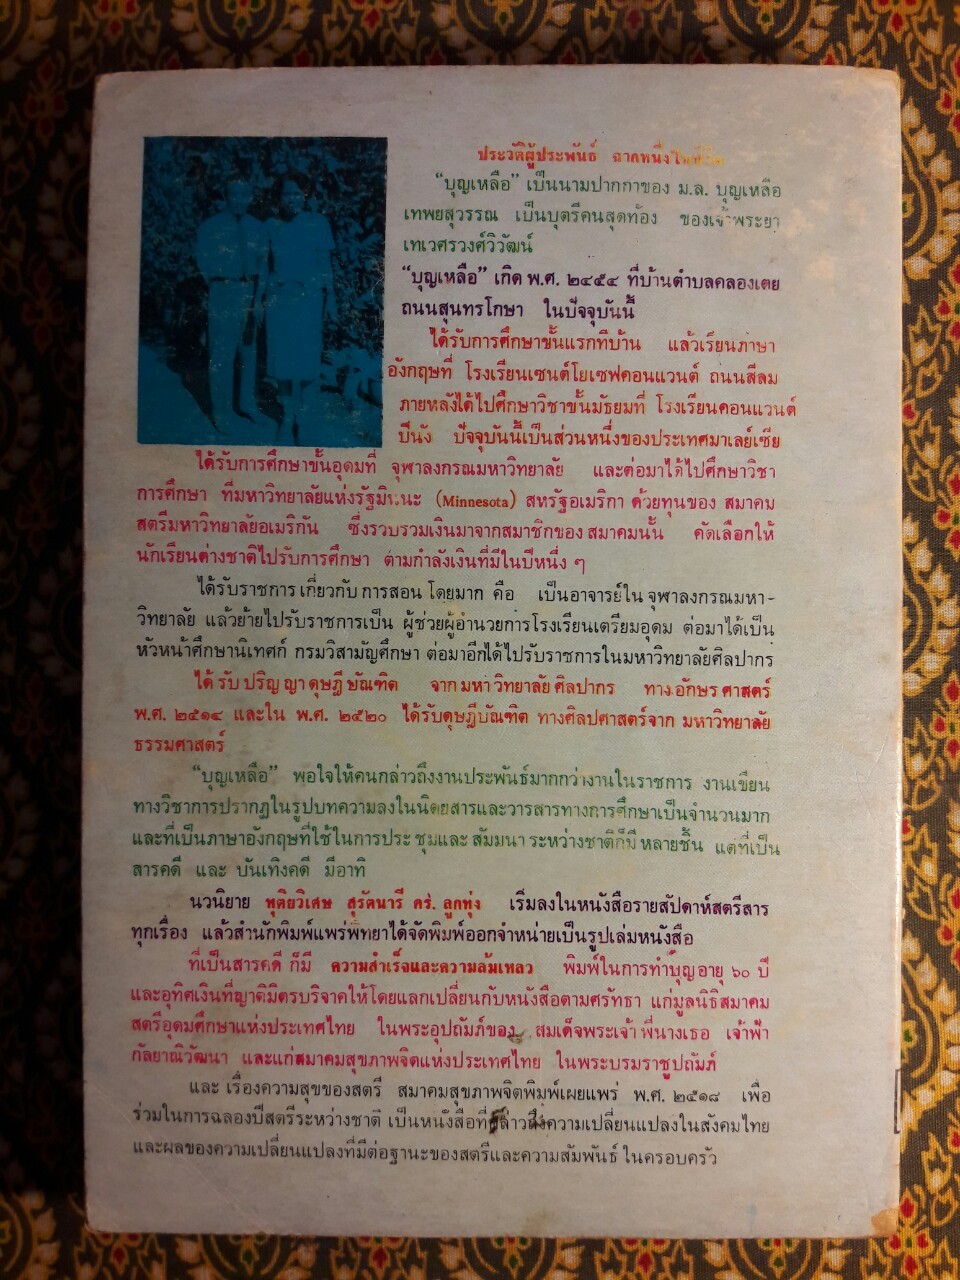 ประวัติผู้ประพันธ์ ฉากหนึ่งใน
“บุญเหลือ” เป็นนามปากกาของ ม.ล. บุญเหลือ
เทพยสุวรรณ เป็นบุตรีคนสุดท้อง ของเจ้าพระยา
เทเวศรวงศ์วิวัฒน์
“บุญเหลือ” เกิด พ.ศ. ๒๔๕๔ ที่บ้านตำบลคลองเตย
ถนนสุนทรโกษา ในปัจจุบันนี้
ได้รับการศึกษาขั้นแรกที่บ้าน แล้วเรียนภาษา
อังกฤษที่ โรงเรียนเซนต์โยเซฟคอนแวนต์ ถนนสีลม
ภายหลังได้ไปศึกษาวิชาขั้นมัธยมที่ โรงเรียนคอนแวนต์
ปีนัง ปัจจุบันนี้เป็นส่วนหนึ่งของประเทศมาเลย์เซีย
ได้รับการศึกษาขั้นอุดมที่ จุฬาลงกรณมหาวิทยาลัย และต่อมาได้ไปศึกษาวิชา
การศึกษา ที่มหาวิทยาลัยแห่งรัฐมินนะ (Minnesota) สหรัฐอเมริกา ด้วยทุนของ สมาคม
สตรีมหาวิทยาลัยอเมริกัน ซึ่งรวบรวมเงินมาจากสมาชิกของ สมาคมนั้น คัดเลือกให้
นักเรียนต่างชาติไปรับการศึกษา ตามกำลังเงินที่มีในปีหนึ่ง ๆ
ได้รับราชการ เกี่ยวกับ การสอน โดยมาก คือ เป็นอาจารย์ใน จุฬาลงกรณมหา-
วิทยาลัย แล้วย้ายไปรับราชการเป็น ผู้ช่วยผู้อำนวยการโรงเรียนเตรียมอุดม ต่อมาได้เป็น
หัวหน้าศึกษานิเทศก์ กรมวิสามัญศึกษา ต่อมาอีกได้ไปรับราชการในมหาวิทยาลัยศิลปากร
ได้ รับ ปริญ ญา ดุษฎี บัณฑิต จาก มหา วิทยาลัย ศิลปากร ทาง อักษร ศาสตร์
พ.ศ. ๒๕๑๔ และใน พ.ศ. ๒๕๒๐ ได้รับดุษฎีบัณฑิต ทางศิลปศาสตร์จาก มหาวิทยาลัย
ธรรมศาสตร์
“บุญเหลือ” พอใจให้คนกล่าวถึงงานประพันธ์มากกว่างานในราชการ งานเขียน
ทางวิชาการปรากฏในรูปบทความลงในนิตยสารและวารสารทางการศึกษาเป็นจำนวนมาก
และที่เป็นภาษาอังกฤษที่ใช้ในการประ ชุมและ สัมมนา ระหว่างชาติก็มี หลายชิ้น แต่ที่เป็น
สารคดี และ บันเทิงคดี มีอาทิ
นวนิยาย ทุติยวิเศษ สุรัตนารี ดร. ลูกทุ่ง เริ่มลงในหนังสือรายสัปดาห์สตรีสาร
ทุกเรื่อง แล้วสำนักพิมพ์แพร่พิทยาได้จัดพิมพ์ออกจำหน่ายเป็นรูปเล่มหนังสือ
ที่เป็นสารคดี ก็มี ความสำเร็จและความล้มเหลว พิมพ์ในการทำบุญอายุ ๖๐ ปี
และอุทิศเงินที่ญาติมิตรบริจาคให้โดยแลกเปลี่ยนกับหนังสือตามศรัทธา แก่มูลนิธิสมาคม
สตรีอุดมศึกษาแห่งประเทศไทย ในพระอุปถัมภ์ของ สมเด็จพระเจ้า พี่นางเธอ เจ้าฟ้า
กัลยาณิวัฒนา และแก่สมาคมสุขภาพจิตแห่งประเทศไทย ในพระบรมราชูปถัมภ์
และ เรื่องความสุขของสตรี สมาคมสุขภาพจิตพิมพ์เผยแพร่ พ.ศ. ๒๕๑๘ เพื่อ
ร่วมในการฉลองปีสตรีระหว่างชาติ เป็นหนังสือที่กล่าวถึงความเปลี่ยนแปลงในสังคมไทย
และผลของความเปลี่ยนแปลงที่มีต่อฐานะของสตรีและความสัมพันธ์ ในครอบครัว